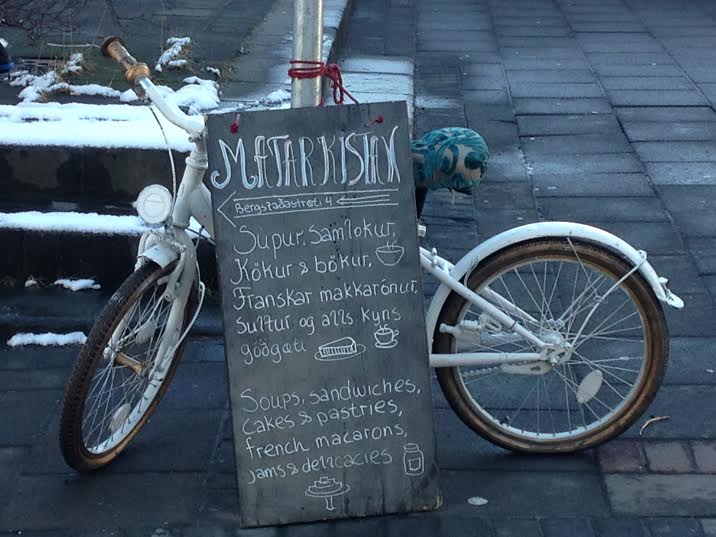 MATARKISTAN
Bergstaðastræti 4
Súpur, samlokur,
Kökur & bökur,
Franskar makkarónur,
Sultur og alls kyns
góðgæti
Soups, sandwiches,
cakes & pastries,
french macarons,
jams & delicacies